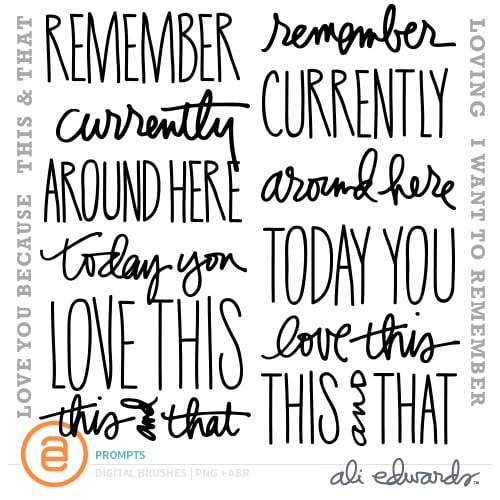 LOVE YOU BECAUSE THIS & THAT
REMEMBER
currently
AROUND HERE
today you
LOVE THIS
this and that
remember
CURRENTLY
around here
TODAY YOU
love this
THIS and THAT
LOVING I WANT TO REMEMBER
ae
PROMPTS
DIGITAL BRUSHES | PNG + ABR
ali edwards™